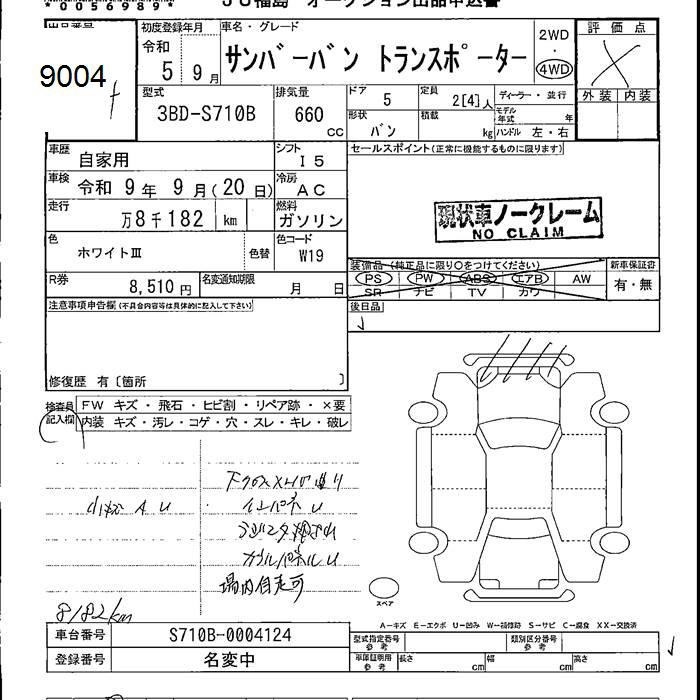 *0056989*
JU福島 オークション出品申込書
出品番号
9004
初度登録年月
令和 5 9月
車名・グレード
サンバーバン トランスポーター
2WD
4WD
評価点
X
型式
3BD-S710B
排気量
660 CC
ドア 5
定員 2[4]人
ディーラー・並行
モデル年式 年
形状 バン
積載 kg
ハンドル 左・右
外装 内装
車歴 自家用
シフト I5
セールスポイント(正常に機能するものに限ります)
車検 令和 9年 9月(20日)
冷房 AC
走行 万8千182 km
燃料 ガソリン
現状車ノークレーム
NO CLAIM
色 ホワイトⅢ 色替
色コード W19
装備品(純正品に限り○をつけてください)
新車保証書
PS PW ABS エアB AW
SR ナビ TV カワ
有・無
R券 8,510円
名変通知期限 月 日
後日品
注意事項申告欄(不具合内容等は具体的に記入して下さい)
修復歴 有〔箇所 〕
検査員記入欄
FW キズ・飛石・ヒビ割・リペア跡・×要
内装 キズ・汚レ・コゲ・穴・スレ・キレ・破レ
小キズ A U
インパネ U
場内自走可
8182km
スペア
A-キズ E-エクボ U-凹み W-補修跡 S-サビ C-腐食 XX-交換済
車台番号 S710B-0004124
型式指定番号 参考
類別区分番号 参考
登録番号 名変中
車庫証明用 参考 長さ cm 幅 cm 高さ cm